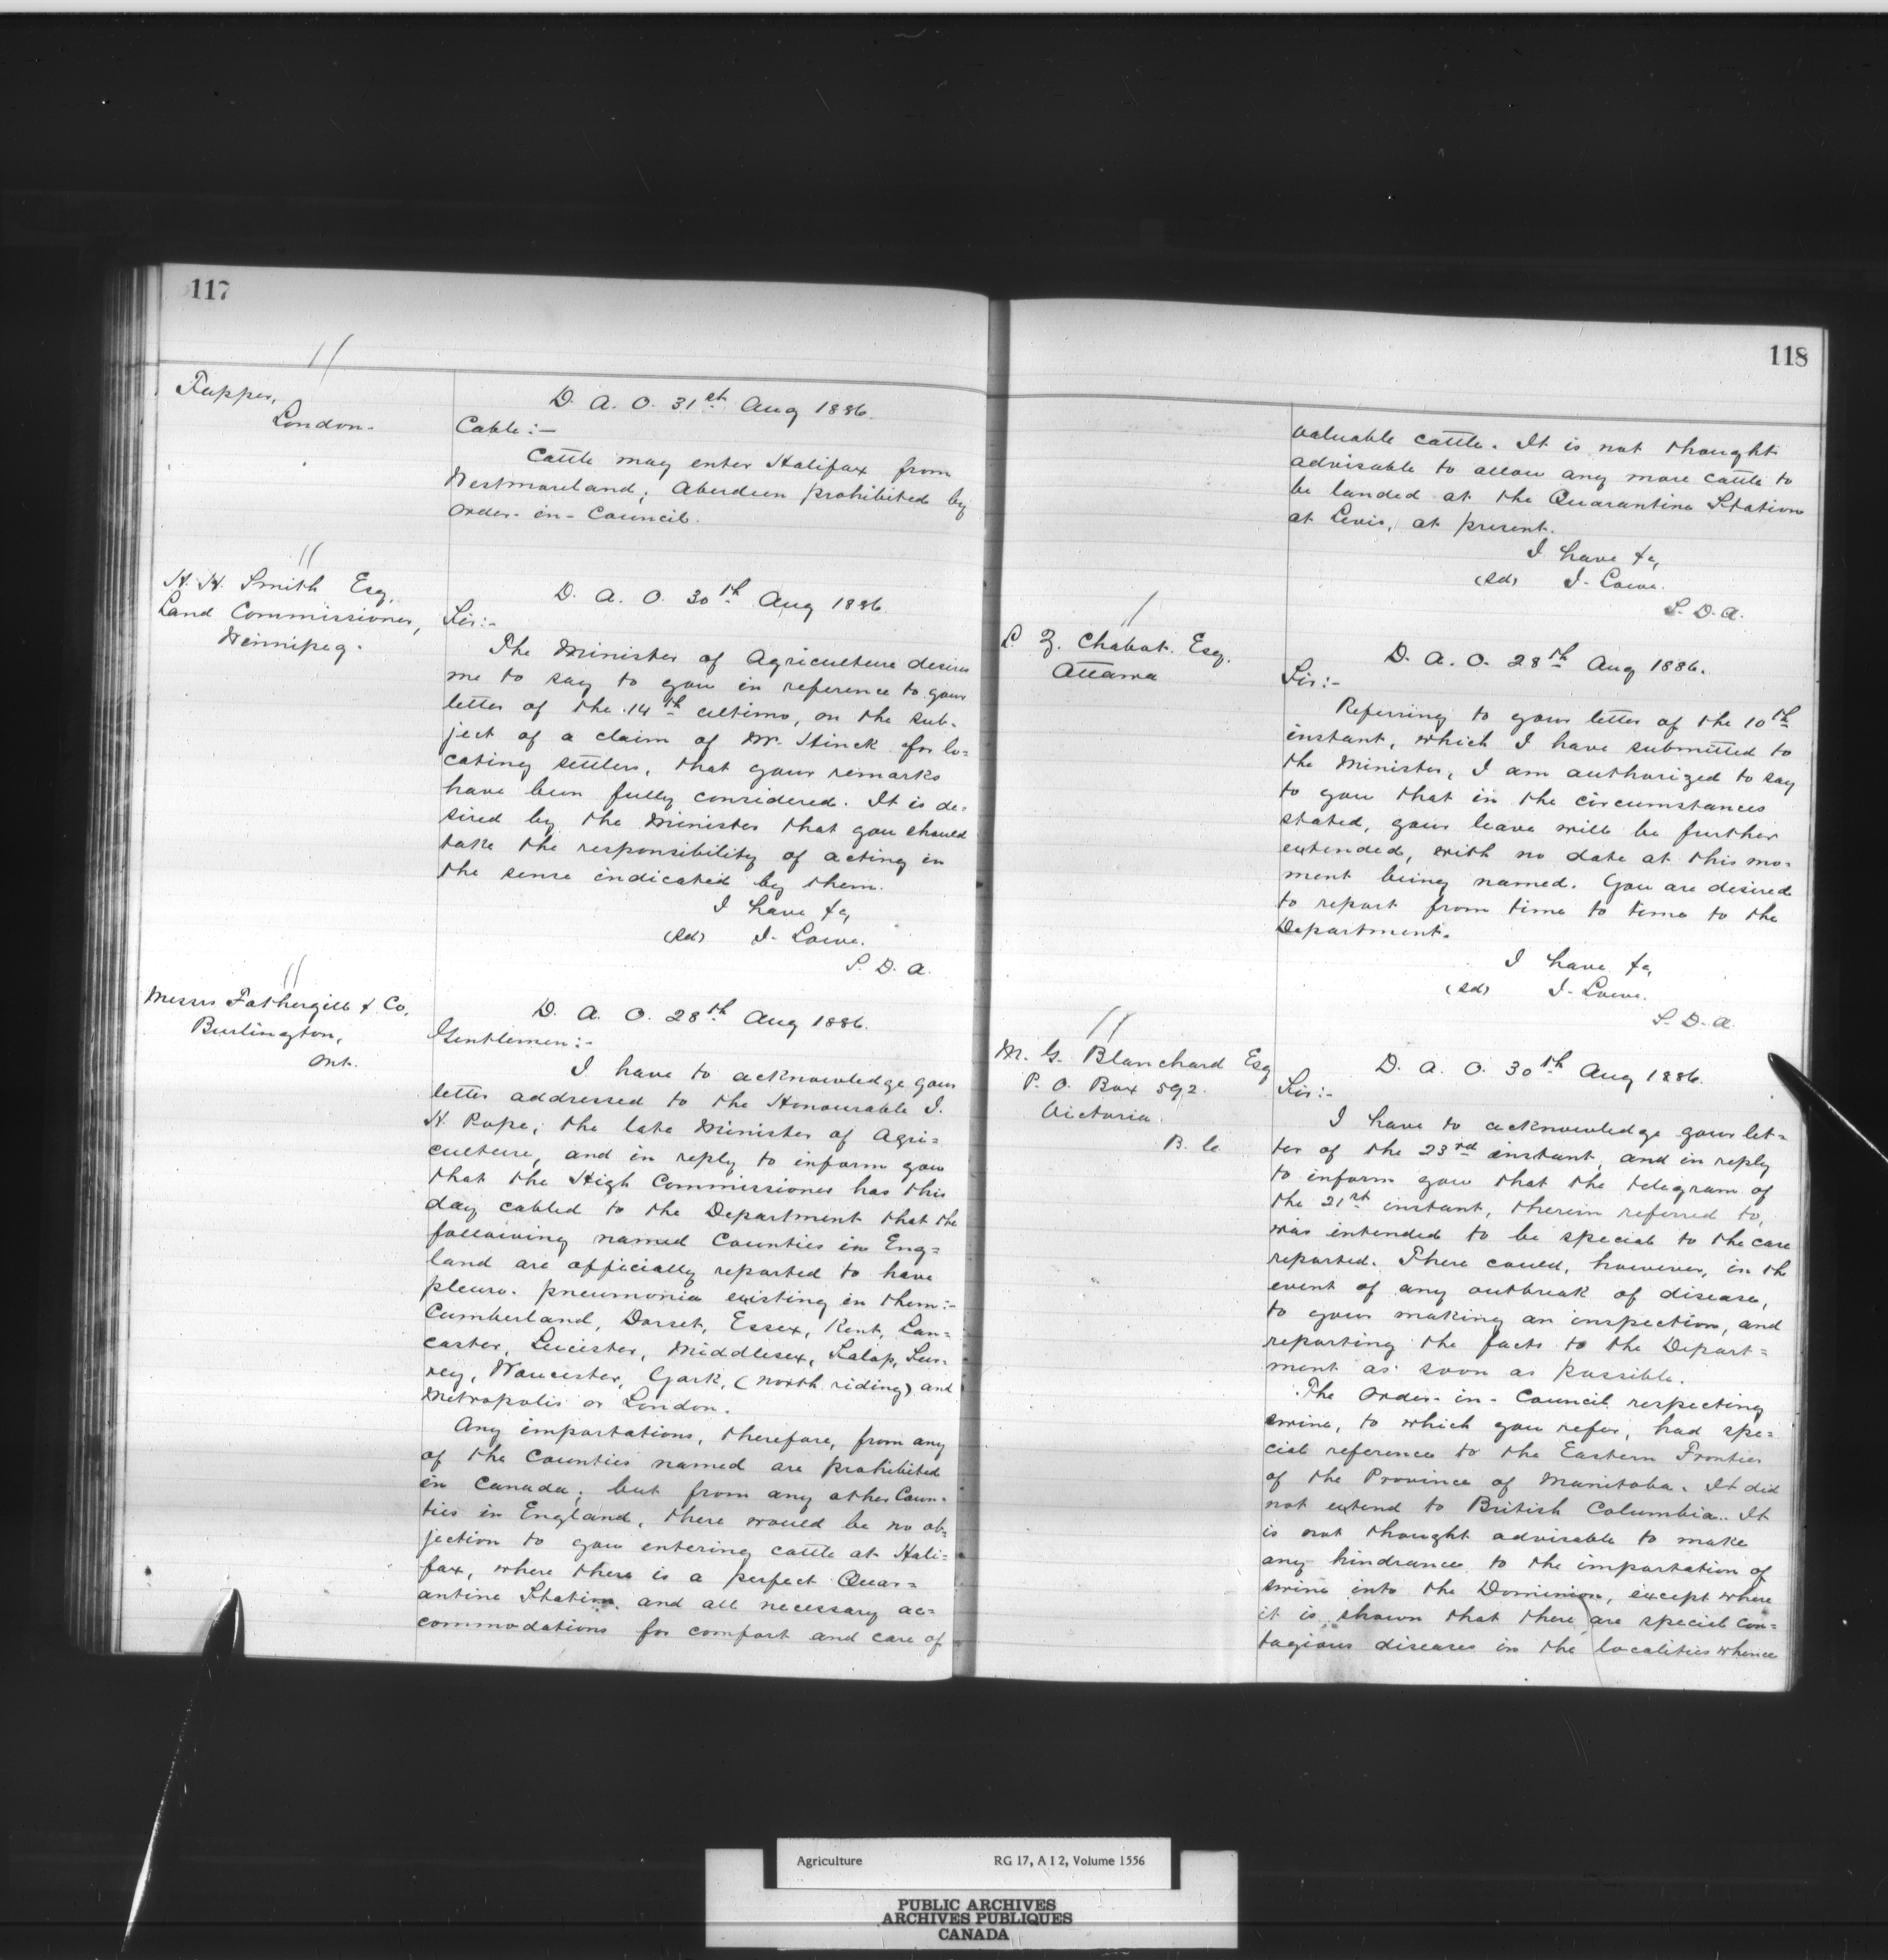 117
Tupper,
London.
D. A. O. 31st Aug 1886.
Cable:—
Cattle may enter Halifax from
Westmoreland; Aberdeen prohibited by
Order-in-Council.
H. H. Smith Esq.
Land Commissioner,
Winnipeg.
D. A. O. 30th Aug 1886.
Sir:-
The Minister of Agriculture desires
me to say to you in reference to your
letter of the 14th ultimo, on the sub-
ject of a claim of Mr. for lo-
cating settlers, that your remarks
have been fully considered. It is de-
sired by the Minister that you should
take the responsibility of acting in
the sense indicated by them.
I have &c,
(Sd) J. Lowe.
S. D. A.
Messrs Fothergill & Co.
Burlington,
Ont.
D. A. O. 28th Aug 1886.
Gentlemen:-
I have to acknowledge your
letter addressed to the Honourable J.
H. Pope, the late Minister of Agri=
culture, and in reply to inform you
that the High Commissioner has this
day cabled to the Department that the
following named Counties in Eng=
land are officially reported to have
pleuro-pneumonia existing in them:-
Cumberland, Dorset, Essex, Kent, Lan=
caster, Leicester, Middlesex, Salop, Sur-
rey, Worcester, York, (North riding) and
Metropolis or London.
Any importations, therefore, from any
of the Counties named are prohibited
in Canada; but from any other Coun-
ties in England, there would be no ob-
jection to you entering cattle at Hali=
fax, where there is a perfect Quar=
antine Station and all necessary ac=
commodations for comfort and care of
118
valuable cattle. It is not thought
advisable to allow any more cattle to
be landed at the Quarantine Station
at Levis, at present.
I have &c,
(Sd) J. Lowe.
S. D. A.
L. Z. Chabot. Esq.
Ottawa
D. A. O. 28th Aug 1886.
Sir:-
Referring to your letter of the 10th
instant, which I have submitted to
the Minister, I am authorized to say
to you that in the circumstances
stated, your leave will be further
extended, with no date at this mo-
ment being named. You are desired
to report from time to time to the
Department.
I have &c,
(Sd) J. Lowe.
S. D. A.
M. G. Blanchard Esq
P. O. Box 592.
Victoria.
B. C.
D. A. O. 30th Aug 1886.
Sir:-
I have to acknowledge your let=
ter of the 23rd instant, and in reply
to inform you that the telegram of
the 21st instant, therein referred to,
was intended to be special to the case
reported. There could, however, in the
event of any outbreak of disease,
to your making an inspection, and
reporting the facts to the Depart=
ment as soon as possible.
The Order-in-Council respecting
swine, to which you refer, had spe=
cial reference to the Eastern Frontier
of the Province of Manitoba. It did
not extend to British Columbia. It
is not thought advisable to make
any hindrance to the importation of
swine into the Dominion, except where
it is shown that there are special con=
tagious diseases in the localities whence
Agriculture RG 17, A I 2, Volume 1556
PUBLIC ARCHIVES
ARCHIVES PUBLIQUES
CANADA